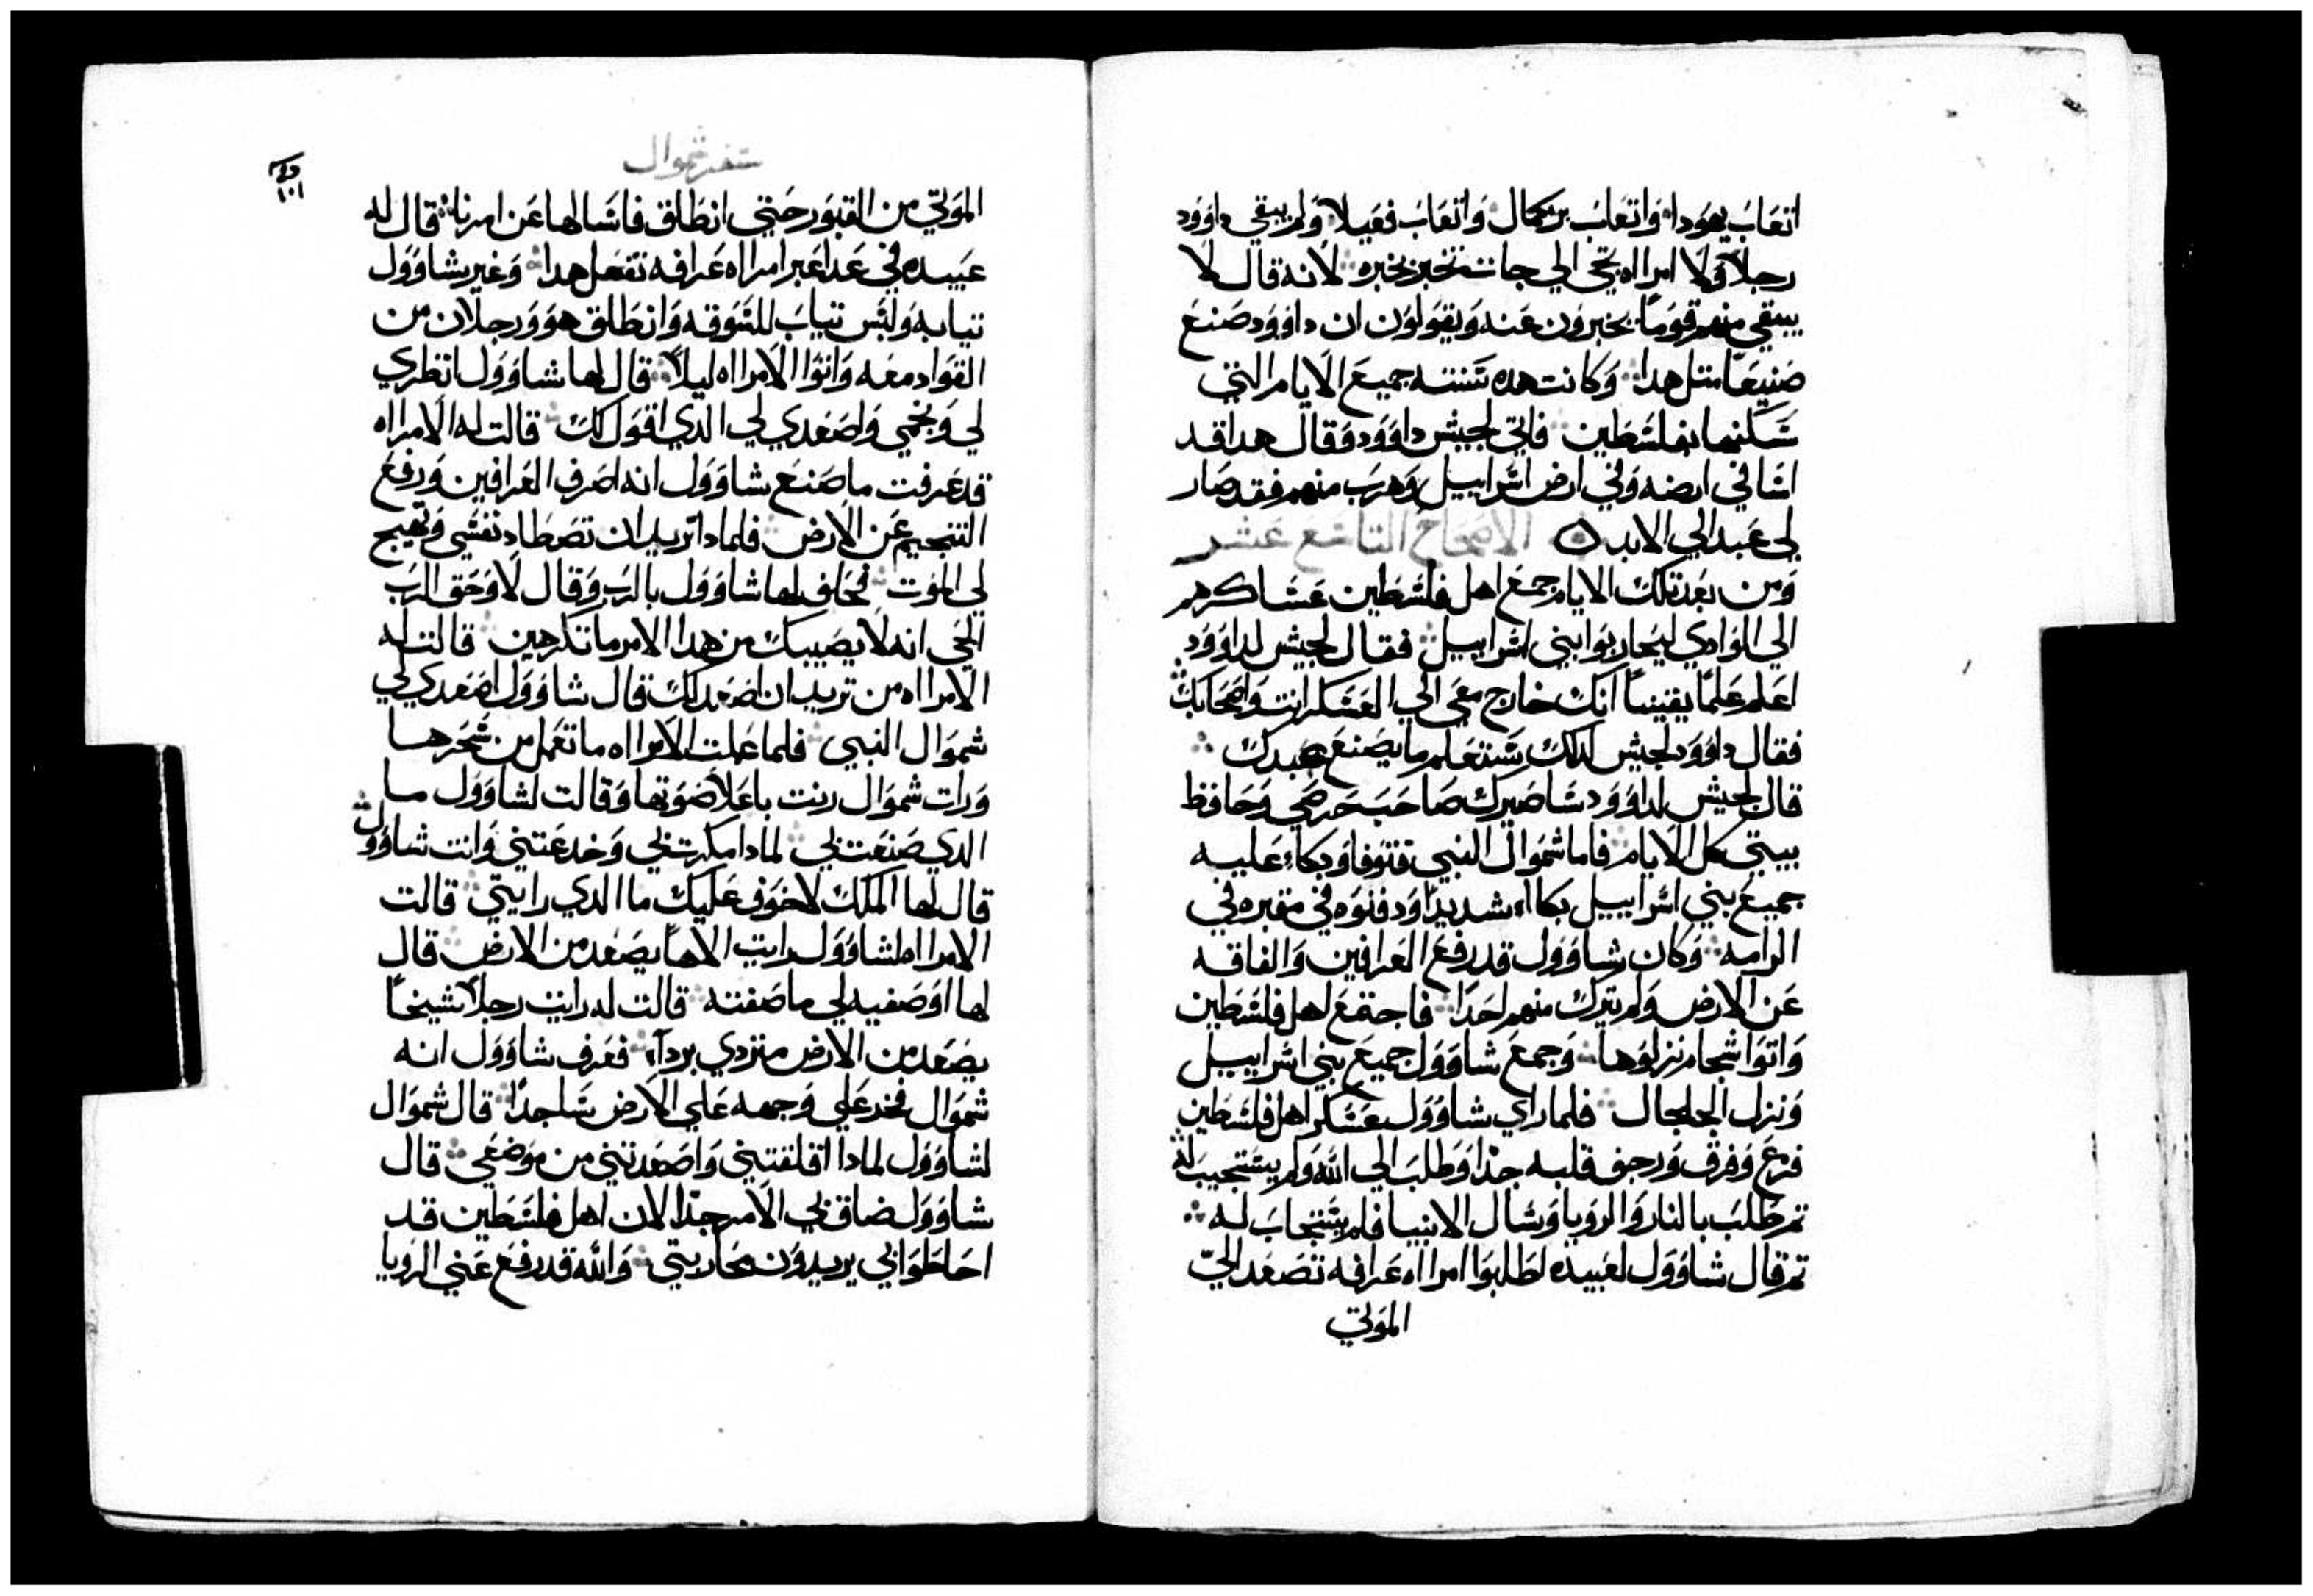 اتعاب يهودا وَاتعاب يركمال وَاتعاب فعيلا وَلم يبقي داوود
رجلاً وَلا امرااه يحي الي جات تخبر بخبره لانه قال لا
يبقي منهم قوماً يخبرون عنه وَيقولون ان داوود صنع
صنيعاً متل هدا وَكانت هده سنته جميع الايام التي
سكنها بفلسطين فاتي لجيش داوود وَقال هدا قد
اسا في ارضه وَفي ارض اسراييل وَهرب منهم فقد صار
لي عبد الي الابد الاصحاح التاسع عشر
وَمن بعد تلك الايام جمع اهل فلسطين عساكرهم
الي الوادي ليحاربوا بني اسراييل فقال لجيش لداوود
اعلم علماً يقيناً انك خارج معي الي العسكر انت وَاصحابك
فقال داوود لجيش لدلك ستعلم ما يصنع عبدك
قال لجيش لداوود ساصيرك صاحب حرصي وَحافظ
بيتي كل الايام فاما شموال النبي فتوفا وَبكاء عليه
جميع بني اسراييل بكااء شديداً وَدفنوه في مقبره في
الرامه وَكان شاوول قد رفع العرافين وَالفاقه
عن الارض وَلم يترك منهم احداً فاجتمع اهل فلسطين
وَاتوا شجام نزلوها وَجمع شاوول جميع بني اسراييل
وَنزل الجلجال فلما راي شاوول بعسكر اهل فلسطين
فزع وَفرق وَرجف قلبه جداً وَطلب الي الله وَلم يستجيب له
تم طلب بالنار وَالرويا وَسال الانبيا فلم يستجاب له
تم قال شاوول لعبيده اطلبوا امرااه عرافه تصعد اليّ
الموتي
سفر شموال
١٠١
الموتي من القبور حتي انطلق فاسالها عن امرنا قال له
عبيده في عداعبر امرااه عرافه تفعل هدا وَغير شاوول
تيابه وَلبس تياب للسوقه وَانطلق هو وَرجلان من
القواد معه وَاتوا الامرااه ليلاً قال لها شاوول انظري
لي وَنجمي وَاصعدي لي الدي اقول لك قالت له الامرااه
قد عرفت ما صنع شاوول انه اصرف العرافين وَرفع
التنجيم عن الارض فلمادا تريد ان تصطاد نفسي وَتهيج
لي الموت فحلف لها شاوول بالرب وَقال لا وَحق الرب
الحي انه لا يصيبك من هدا الامر ما تكرهين قالت له
الامرااه من تريد ان اصعد لك قال شاوول اصعدي لي
شموال النبي فلما عملت الامرااه ما تعمل من سحرها
وَرات شموال رنت باعلا صوتها وَقالت لشاوول ما
الدي صنعت بي لمادا مكرت بي وَخدعتني وَانت شاوول
قال لها الملك لا خوف عليك ما الدي رايتي قالت
الامرااه لشاوول رايت الاهاً يصعد من الارض قال
لها اوصفيه لي ما صفته قالت له رايت رجلاً شيخاً
يصعد من الارض متردي برداء فعرف شاوول انه
شموال فخر علي وَجهه علي الارض ساجداً قال شموال
لشاوول لمادا اقلقتني وَاصعدتني من موضعي قال
شاوول ضاق بي الامر جدّا الان اهل فلسطين قد
احاطوا بي يريدون محاربتي وَالله قد رفع عني الرويا